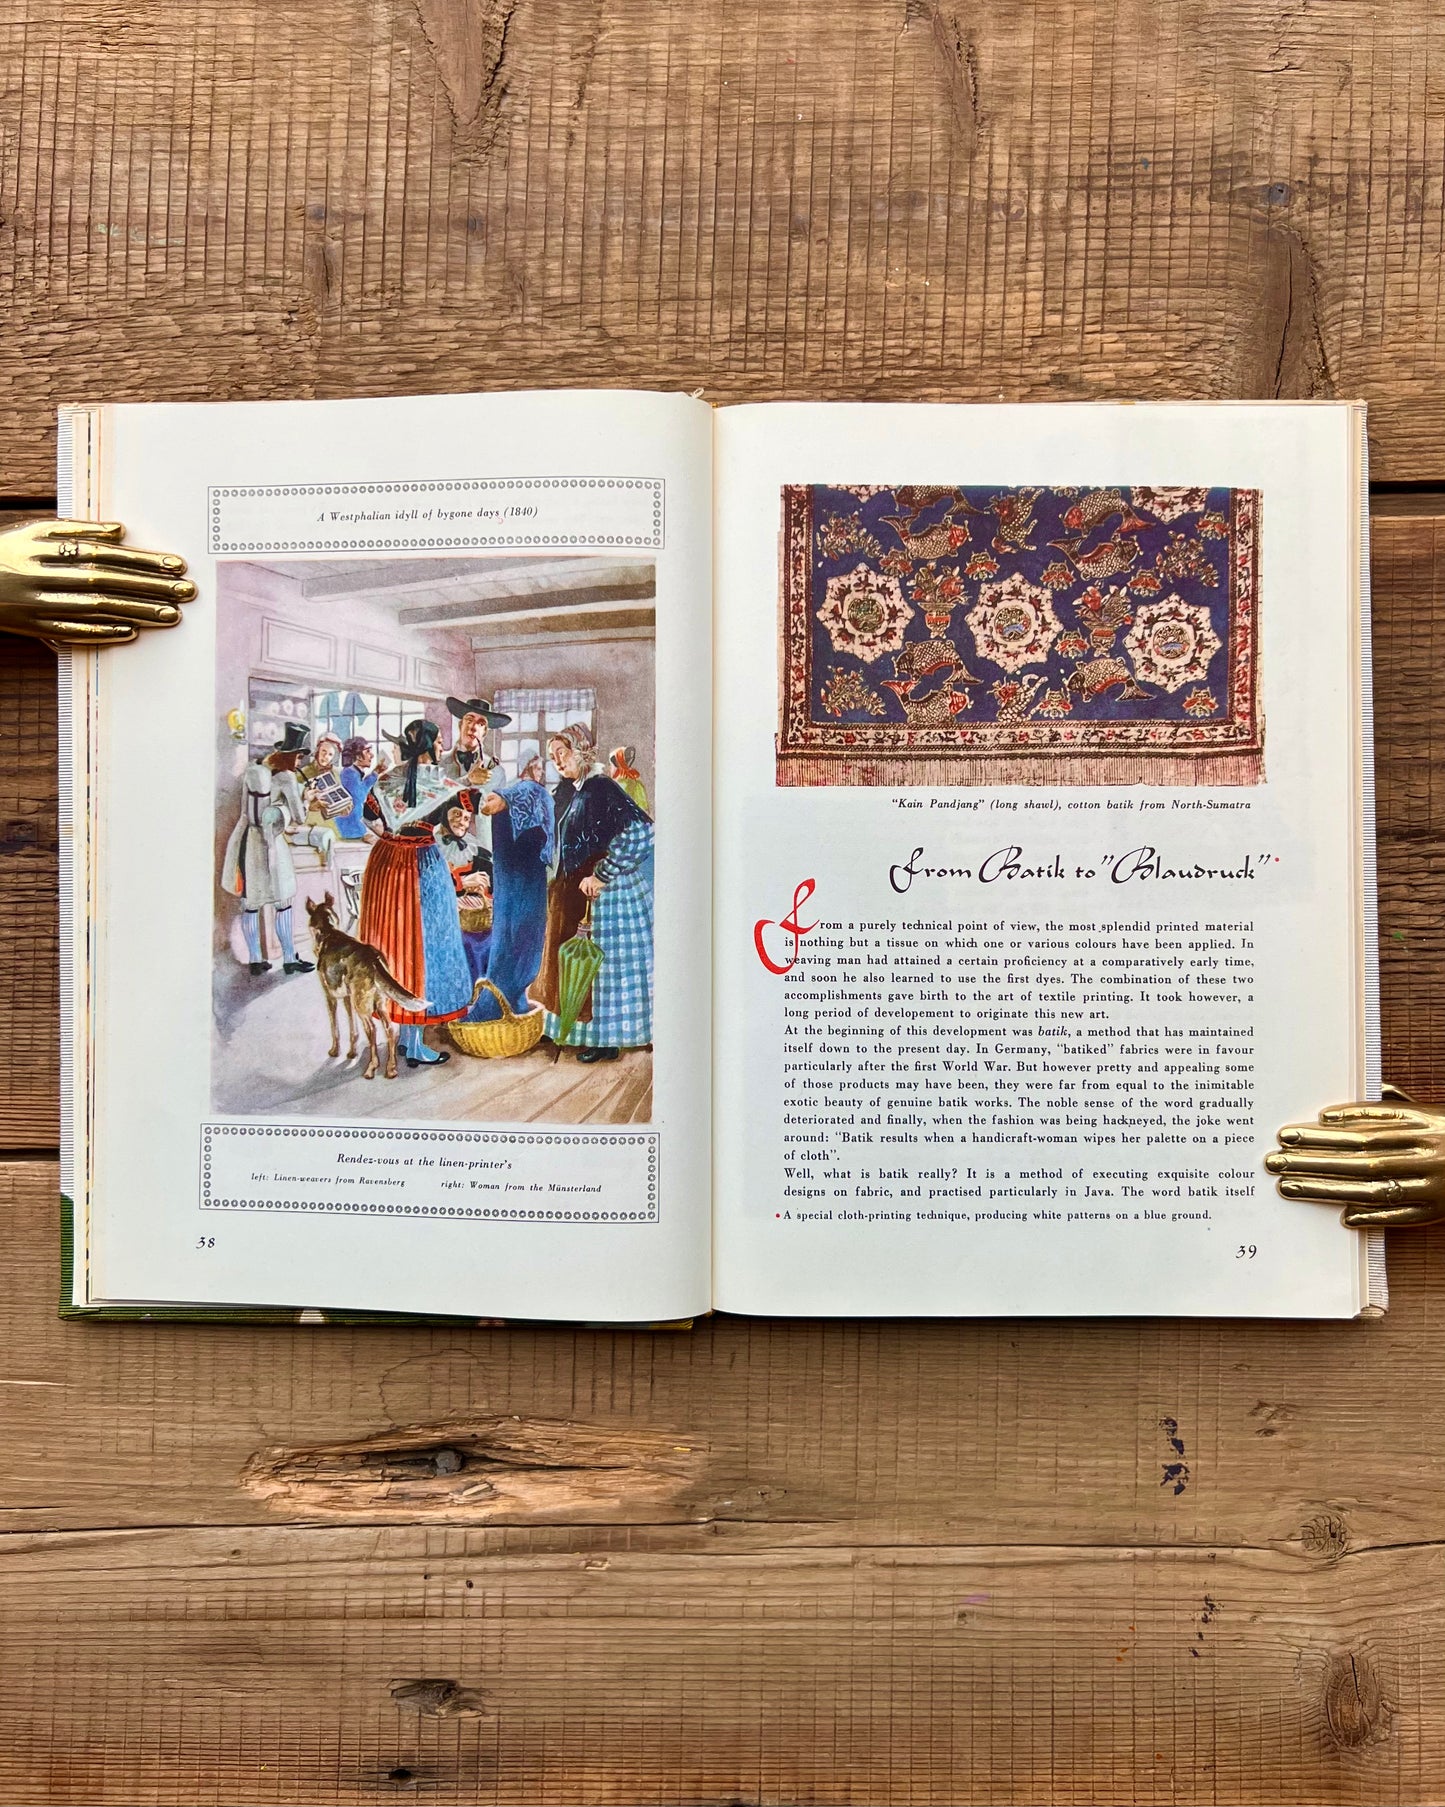 A Westphalian idyll of bygone days (1840)
Rendez-vous at the linen-printer's
left: Linen-weavers from Ravensberg right: Woman from the Münsterland
38
"Kain Pandjang" (long shawl), cotton batik from North-Sumatra
From Batik to "Blaudruck"•
From a purely technical point of view, the most splendid printed material
is nothing but a tissue on which one or various colours have been applied. In
weaving man had attained a certain proficiency at a comparatively early time,
and soon he also learned to use the first dyes. The combination of these two
accomplishments gave birth to the art of textile printing. It took however, a
long period of developement to originate this new art.
At the beginning of this development was batik, a method that has maintained
itself down to the present day. In Germany, "batiked" fabrics were in favour
particularly after the first World War. But however pretty and appealing some
of those products may have been, they were far from equal to the inimitable
exotic beauty of genuine batik works. The noble sense of the word gradually
deteriorated and finally, when the fashion was being hackneyed, the joke went
around: "Batik results when a handicraft-woman wipes her palette on a piece
of cloth".
Well, what is batik really? It is a method of executing exquisite colour
designs on fabric, and practised particularly in Java. The word batik itself
• A special cloth-printing technique, producing white patterns on a blue ground.
39